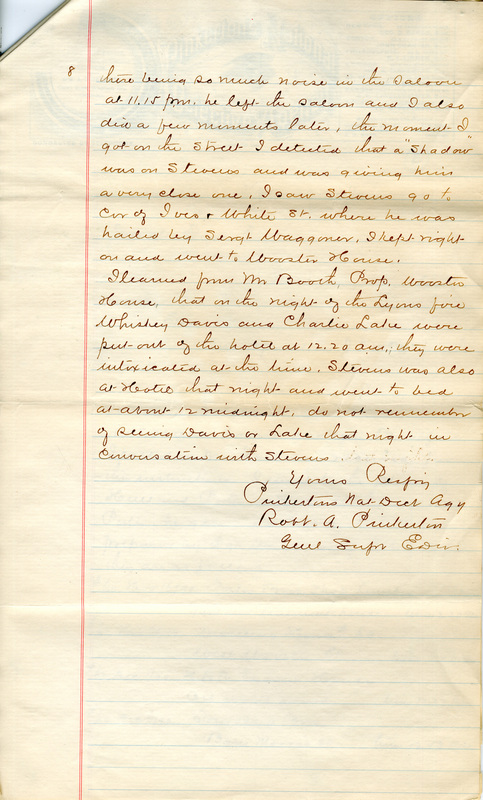 8
there being so much noise in the saloon
at 11.15 pm. he left the saloon and I also
did a few moments later, the moment I
got on the street I detected that a "Shadow"
was on Stevens and was giving him
a very close one, I saw Stevens go to
Cor of Ives & White St. where he was
hailed by Sergt Waggoner. I kept right
on and went to Wooster House.
I learned from Mr Booth, Prop. Wooster
House, that on the night of the Lyons fire
Whiskey Davis and Charlie Lake were
put out of the hotel at 12.20 am; they were
intoxicated at the time. Stevens was also
at Hotel that night and went to bed
at about 12 midnight, do not remember
of seeing Davis or Lake that night in
conversation with Stevens
Yours Respy
Pinkertons Nat Dect Agy
Robt. A. Pinkerton
Genl Supt E Div.